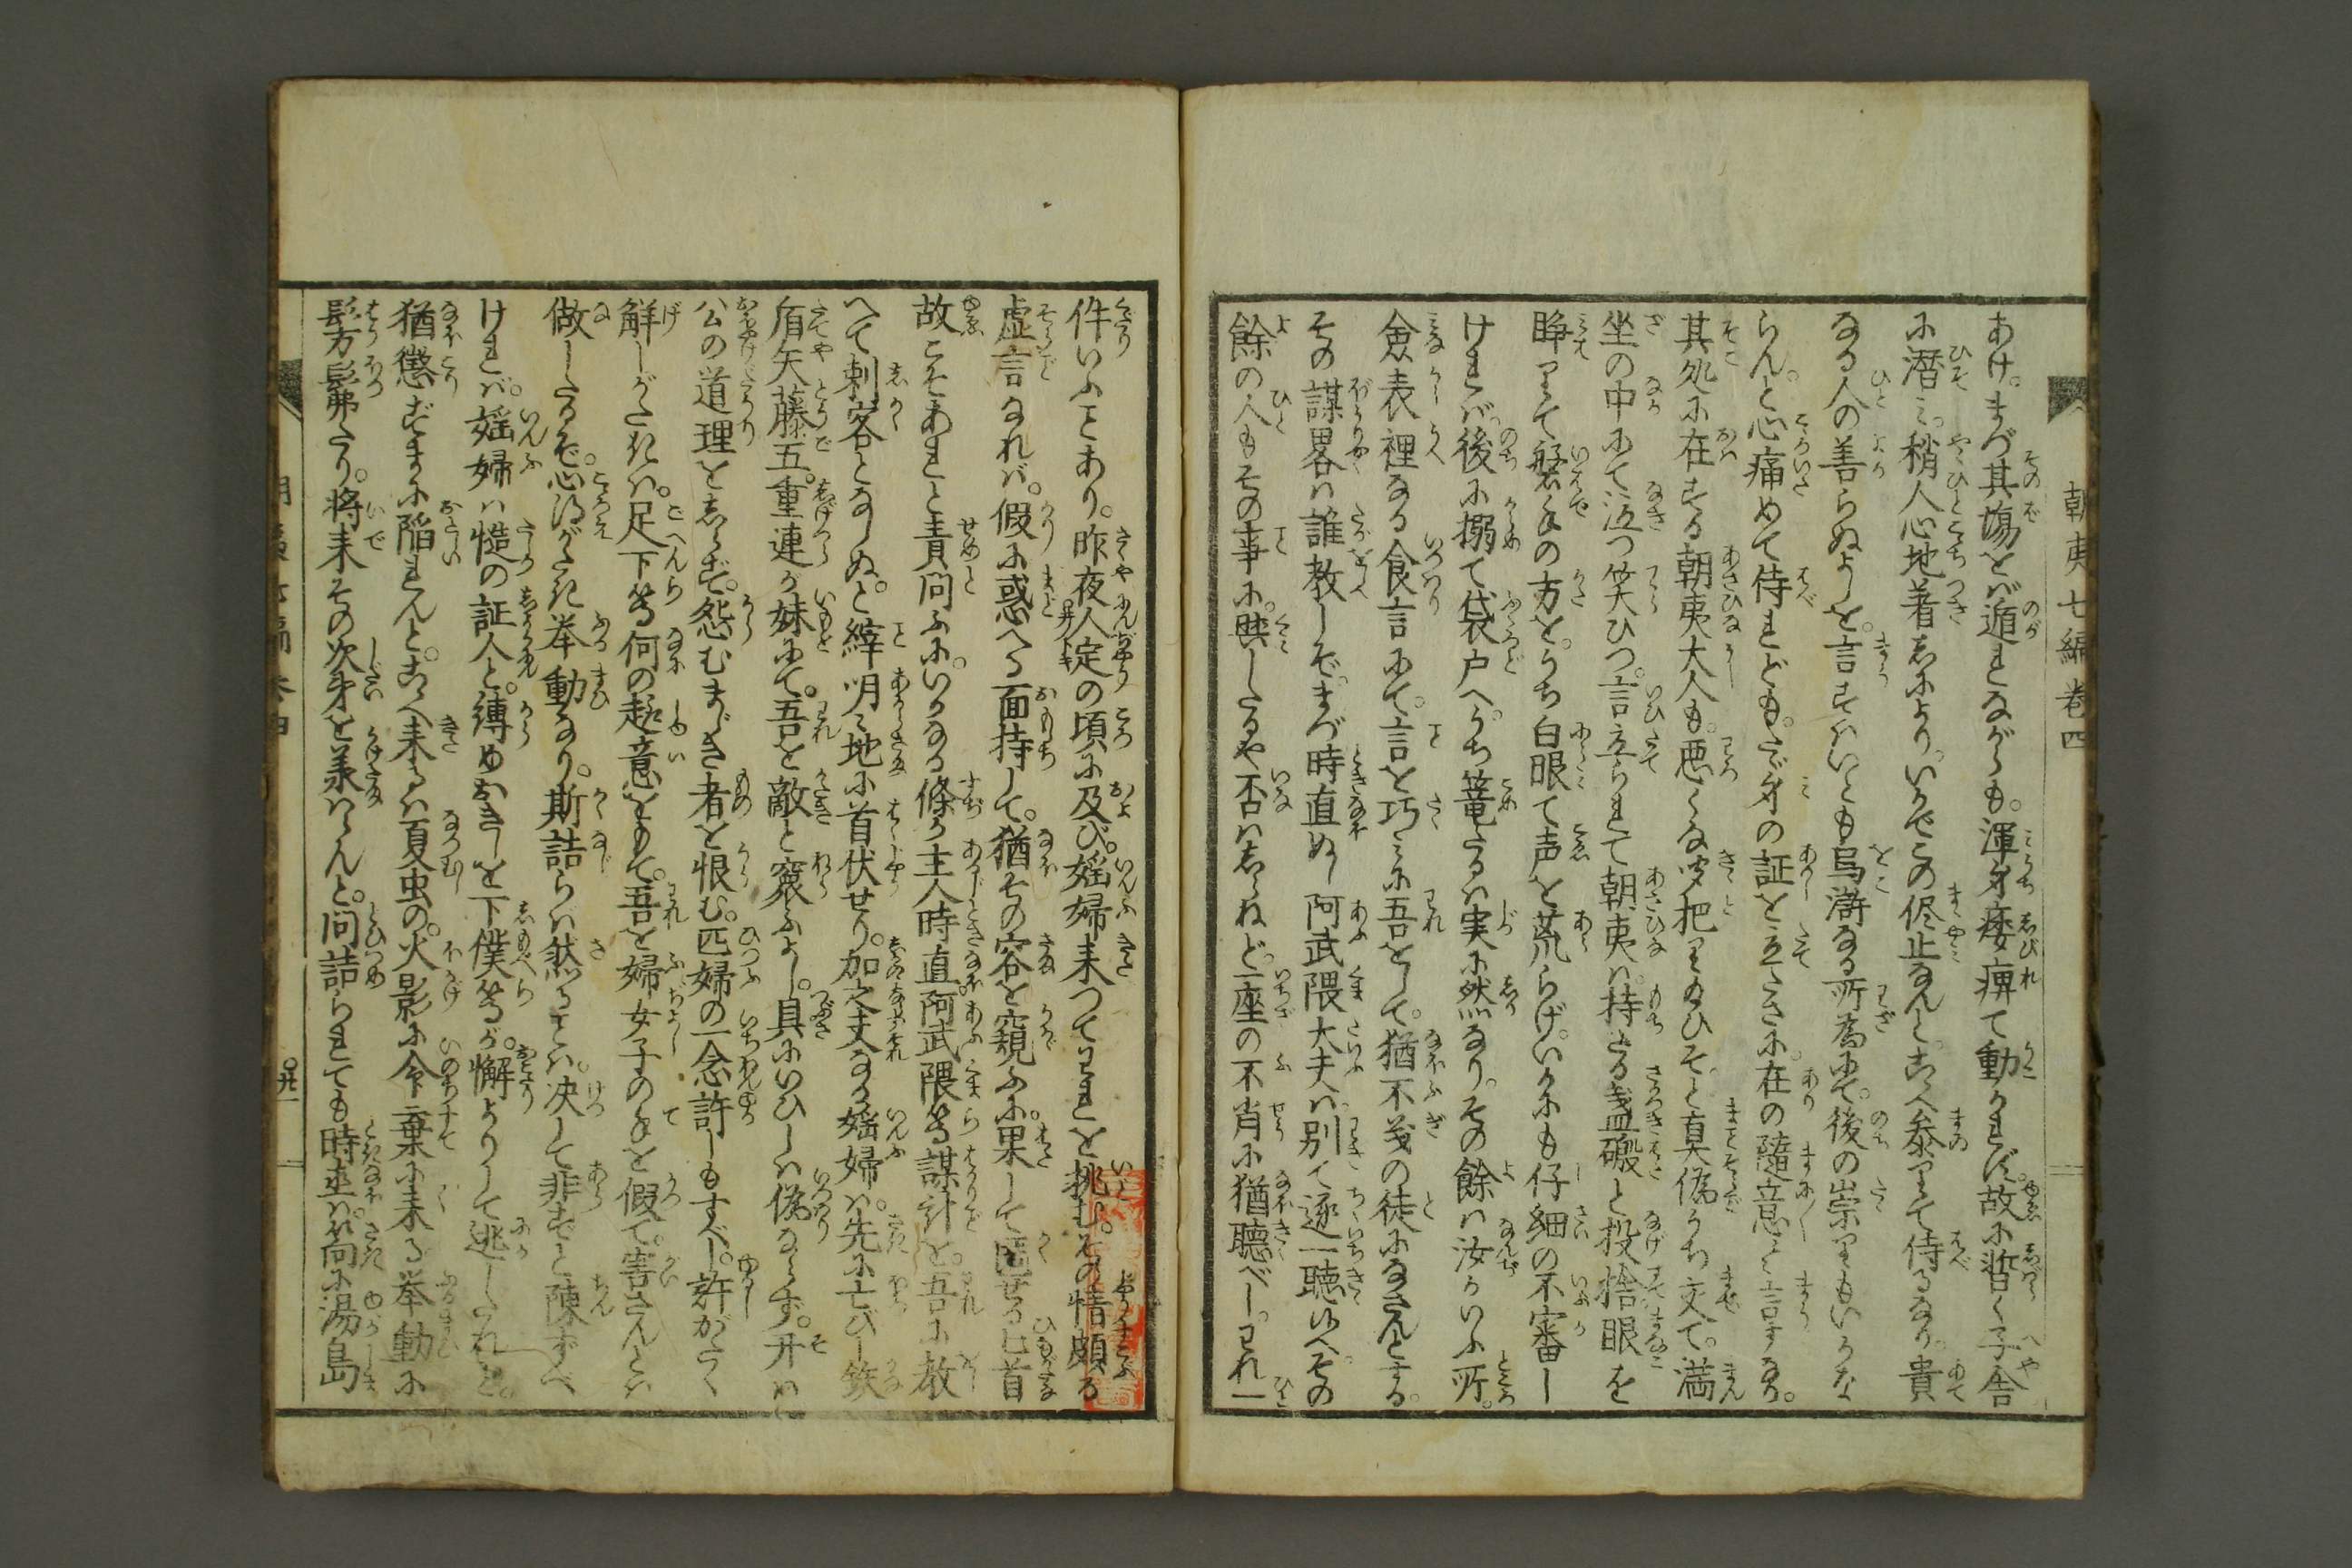 朝夷七編巻四
あけ。まづ其塲をば遁れながらも。渾身痿痺て動かれず。故に暫く子舎
に潜み。稍人心地着しにより。いかでこの侭止なんと。こゝへ参りて侍るなり。貴
なる人の善らぬよしを。言すはいとも烏滸なる所為にて。後の祟りもいかな
らんと。心痛めて侍れども。だ身の証を立たさに。在の隨意に言すなり。
其処に在する朝夷大人も。悪くな聞把りそと真偽うち交て。満
坐の中にて泣つ笑ひつ。言立られて朝夷は。持たる盞礑と投捨眼を
睁りて磐手の方を。うち白眼て声を荒らげ。いかにも仔細の不審し
ければ。後に搦て袋戸へ。うち篭たるは実に然なり。その餘は汝がいふ所。
僉表裡なる食言にて。言を巧みに吾をして。猶不義の徒になさんとする。
その謀畧は誰教しぞ。まづ時直ぬし阿武隈大夫は。別て逐一聴ゆへ。その
餘の人もその事に。與したるや否はしらねど。一座の不肖に猶聴べし。われ一
件いふことあり。昨夜人定の頃に及び。婬婦来つてわれを挑む。その情頗る
虚言なれば。假に惑へる面持して。猶その容を窺ふに。果して匿せる匕首
故こそあれと責問ふに。いかなる條か主人時直阿武隈等謀計を。吾に教
へて刺客となしぬ。と縡明々地に首伏せり。加之丈なる婬婦は。先に亡びし鉄
盾矢藤五。重連が妹にて。吾を敵と窺ふよし。具にいひしは偽ならず。开は
公の道理をしらず。怨むまじき者を恨む。匹婦の一念許しもすべし。許がたく
觧しがたきは。足下等何の趣意をもて。吾を婦女子の手を假て。害さんとは
做したるぞ。心得がたき挙動なり。斯詰らは然ることは。决して非ずと陳ずべ
ければ。婬婦は慥の証人と。縛めおきしを下僕等が。懈よりして逃したれと。
猶懲ずまに陥れんと。こゝへ来るは夏虫の。火影に命棄に来る挙動に
髣髴たり。将来その次第を羕はらんと。問詰られても時直は。向に湯島